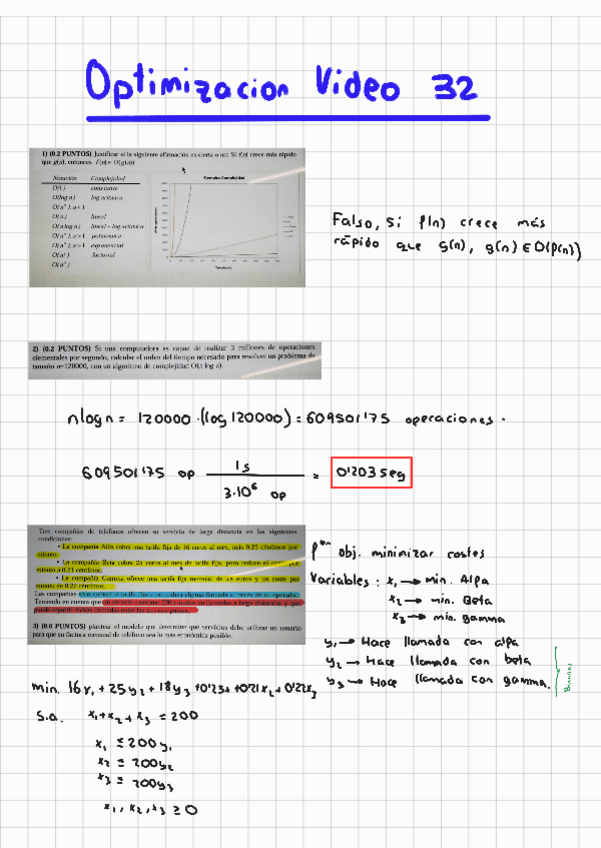 Optimizacion Video 32
1) (0.2 PUNTOS) Justificar si la siguiente afirmación es cierta o no: Si f(n) crece más rápido
que g(n), entonces f(n)= O(g(n))
Notación Complejidad
O(1) constante
O(log n) logarítmica
O(n^c), c<1
O(n) lineal
O(n log n) lineal - logarítmica
O(n^c), c>1 polinómica
O(c^n), c>1 exponencial
O(n!) factorial
O(n^n)
Ejemplos Complejidad
Falso, si f(n) crece más
rápido que g(n), g(n) ∈ O(f(n))
2) (0.2 PUNTOS) Si una computadora es capaz de realizar 3 millones de operaciones
elementales por segundo, calcular el orden del tiempo necesario para resolver un problema de
tamaño n=120000, con un algoritmo de complejidad O(n log n).
nlogn = 120000·(log 120000) = 609501'175 operaciones.
609501'175 op 1s / 3·10⁶ op = 0'203 seg
Tres compañías de teléfonos ofrecen su servicio de larga distancia en las siguientes
condiciones:
• La compañía Alfa cobra una tarifa fija de 16 euros al mes, más 0.25 céntimos por
minuto.
• La compañía Beta cobra 25 euros al mes de tarifa fija, pero reduce el coste por
minuto a 0.21 céntimos.
• La compañía Gamma ofrece una tarifa fija mensual de 18 euros y un coste por
minuto de 0.22 céntimos.
3) (0.6 PUNTOS) plantear el modelo que determine que servicios debe utilizar un usuario
para que su factura mensual de teléfono sea lo más económica posible.
fᵒⁿ obj. minimizar costes
Variables: x₁ → min. Alfa
x₂ → min. Beta
x₃ → min. gamma
y₁ → Hace llamada con alfa
y₂ → Hace llamada con beta
y₃ → Hace llamada con gamma.
Binarias
min. 16y₁ + 25y₂ + 18y₃ + 0'25x + 0'21x₂ + 0'22x₃
s.a. x₁+x₂+x₃ = 200
x₁ ≤ 200y₁
x₂ ≤ 200y₂
x₃ ≤ 200y₃
x₁, x₂, x₃ ≥ 0